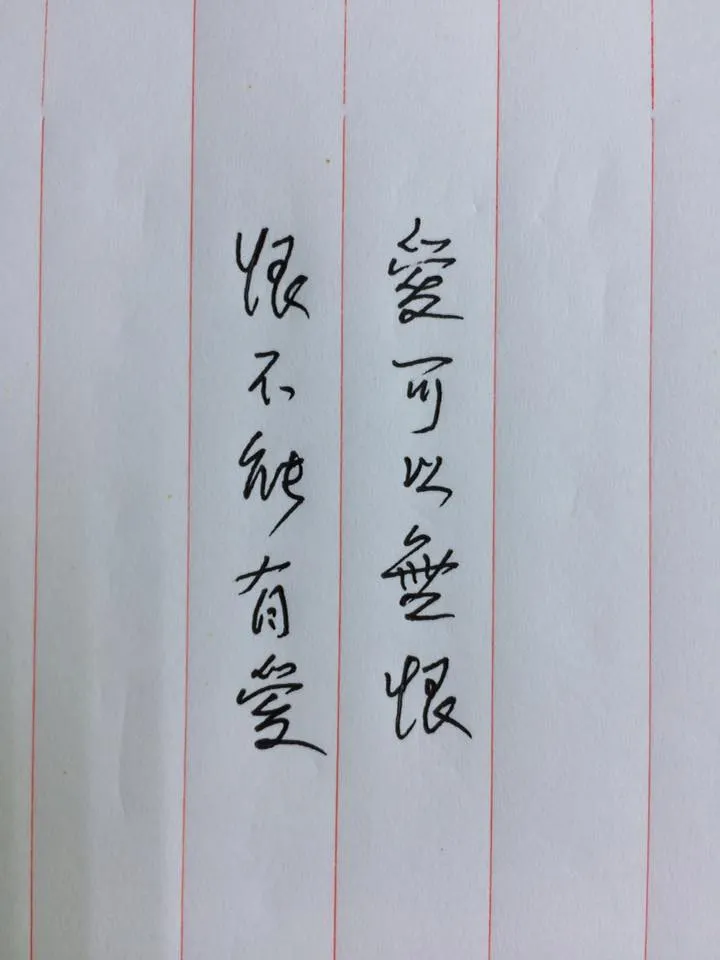 愛可以無恨
恨不能有愛